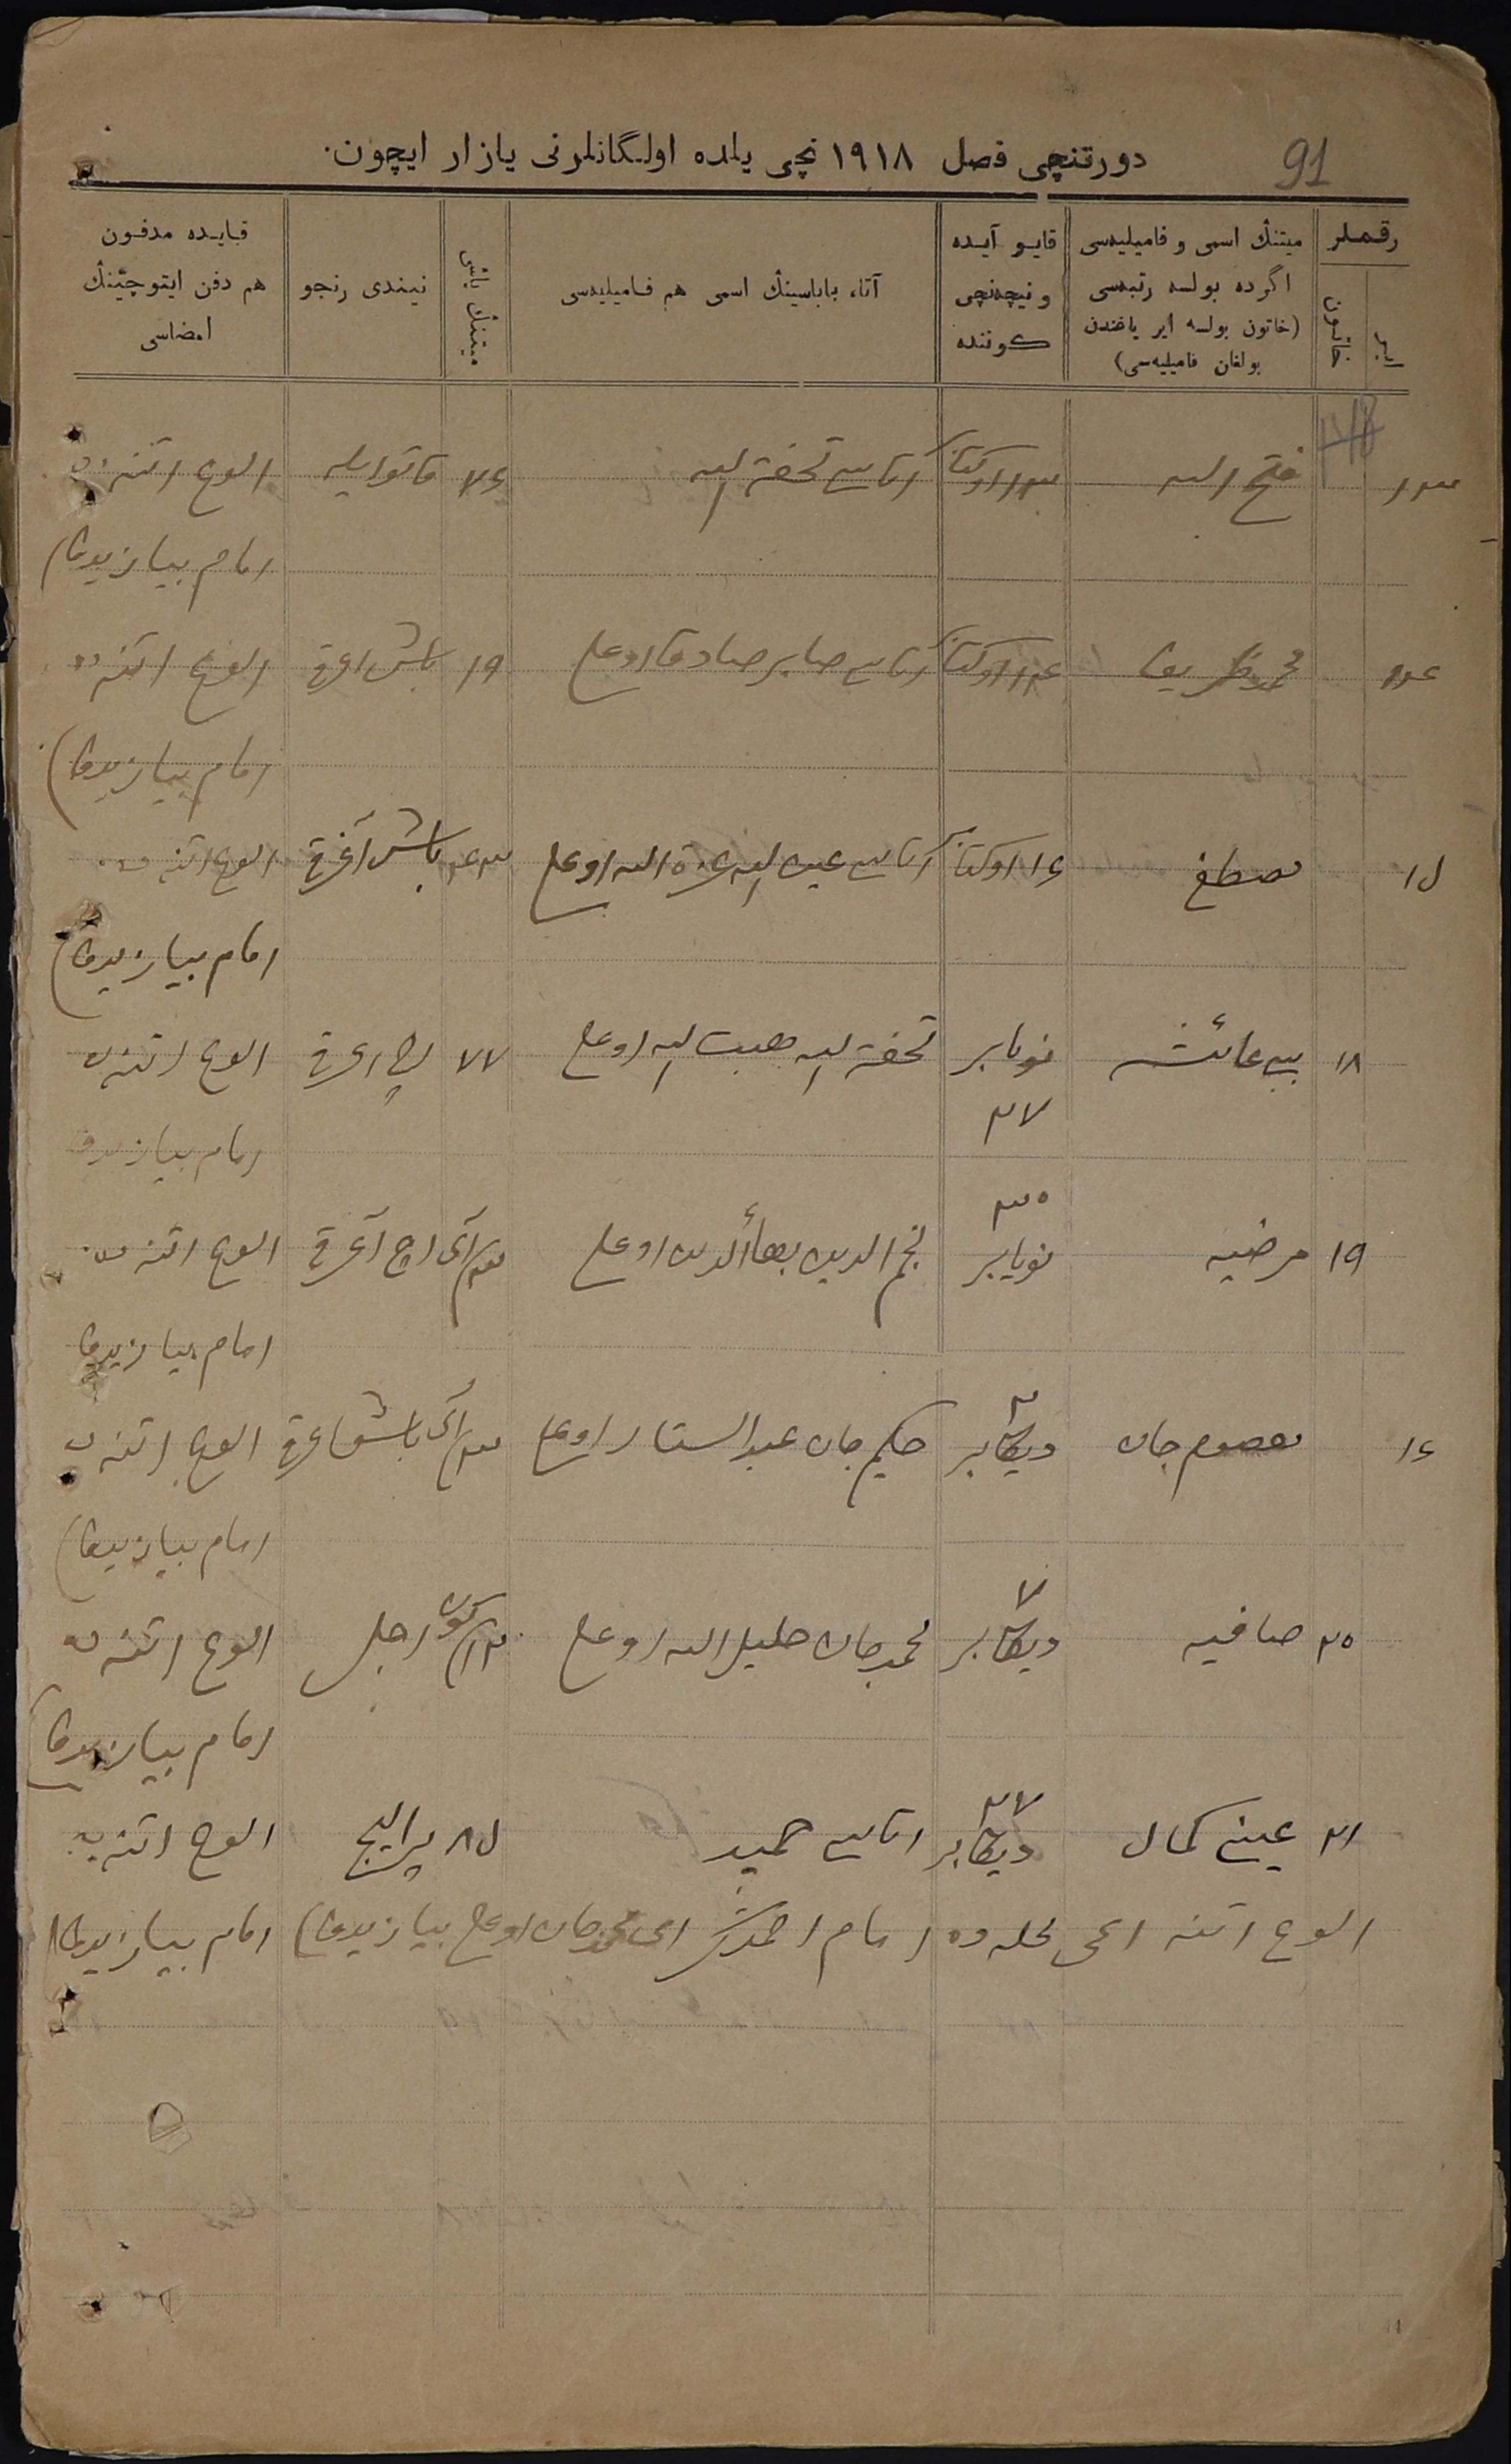 91
دورتنچی فصل ۱۹۱۸ نچی یلده اولـگانلرنی یازار ایچون.
رقـملر
ایر
خاتون
میتنڭ اسمی و فامیلیه‌سی اگرده بولسه رتبه‌سی (خاتون بولسه ایر یاغندن بولغان فامیلیه‌سی)
قایـو آیـده و نیچه‌نچی کوننده
آتا، باباسینڭ اسمی هم فـامیلیه‌سی
میتنڭ یاشی
نیـندی رنجو
قـایـده مدفـون هم دفن ایتوچینڭ امضاسی
۱۳ فتح الله ۱۳ اوکتا اتاسی تحفة الله ۷۶ الوع اتنه ده
امام بیازیدف
۱۴ محمدظریف ۱۴ اوکتا اتاسی صابر صادق اوغلی ۱۹ باش اغرق الوغ اتنه ده
امام بیازیدف
۱۵ مصطفی ۱۶ اوکتا اتاسی عبدالله عزة الله اوغلی ۴۳ باش آغرق الوع اتنه ده
امام بیازیدف
۱۸ بیبی عائشه نویابر ۲۷ تحفة الله هبت الله اوغلی ۷۷ اچ اغرق الوع اتنه ده
امام بیازیدف
۱۹ مرضیه ۳۰ نویابر نجم الدین بهاألدین اوغلی ۳ آی اچ آغرق الوع اتنه ده
امام بیازیدف
۱۶ معصوم جان ۲ دیکابر حکیم جان عبدالستار اوغلی ۳ آی باش اغرق الوع اتنه ده
امام بیازیدف
۲۰ صافیه ۷ دیکابر محمدجان خلیل الله اوغلی ۱۲ کون اجل الوع اتنه ده
امام بیازیدف
۲۱ عینی کمال ۲۷ دیکابر اتاسی حمید ۸۵ الوع اتنه ده
الوع اتنه محله ده امام احمد محمدجان اوغلی بیازیدف امام بیازیدف